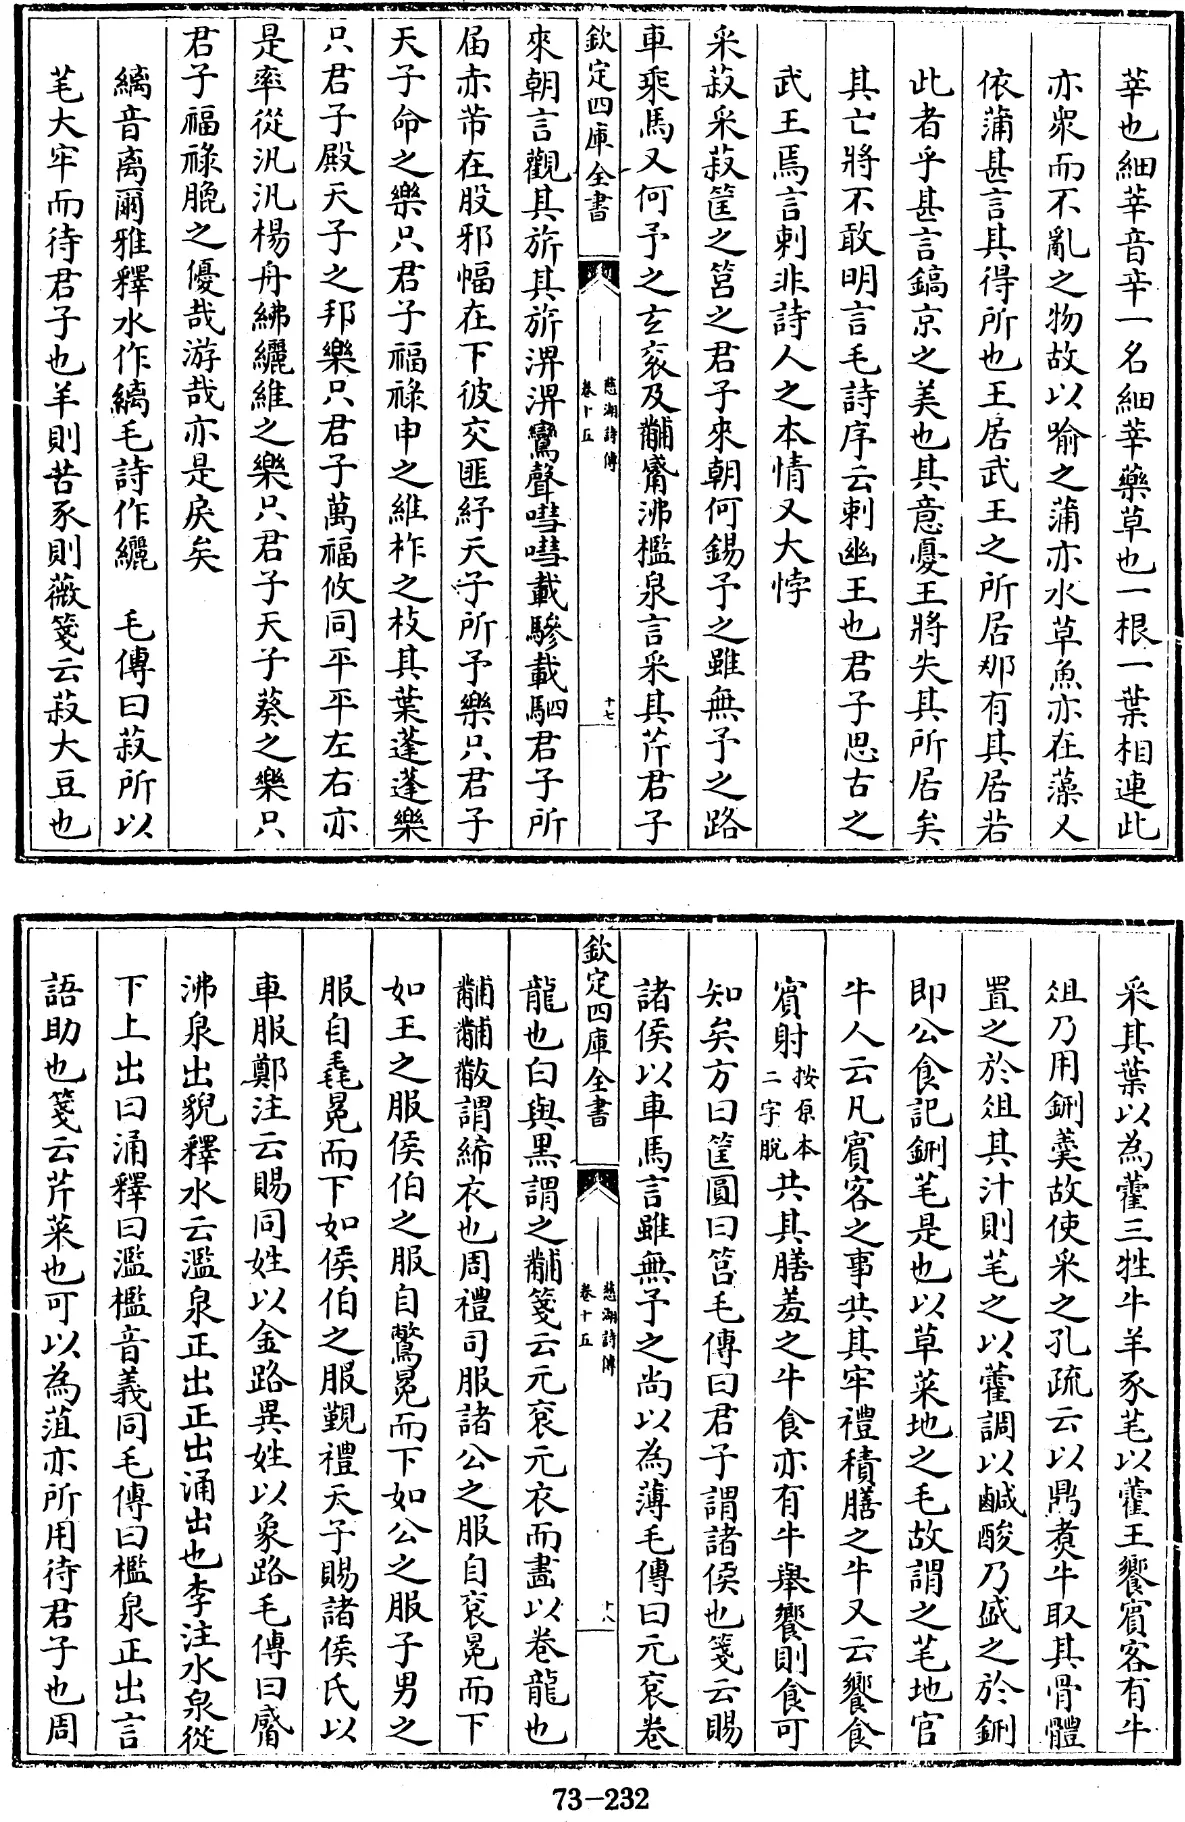 莘也細莘音辛一名細莘藥草也一根一葉相連此
亦衆而不亂之物故以喻之蒲亦水草魚亦在藻又
依蒲甚言其得所也王居武王之所居那有其居若
此者乎甚言鎬京之美也其意憂王將失其所居矣
其亡將不敢明言毛詩序云刺幽王也君子思古之
武王焉言刺非詩人之本情又大悖
采菽采菽筐之筥之君子來朝何錫予之雖無予之路
車乘馬又何予之玄衮及黼觱沸檻泉言采其芹君子
欽定四庫全書
慈湖詩傳
卷十五
十七
來朝言觀其旂其旂淠淠鸞聲嘒嘒載驂載駟君子所
届赤芾在股邪幅在下彼交匪紓天子所予樂只君子
天子命之樂只君子福祿申之維柞之枝其葉蓬蓬樂
只君子殿天子之邦樂只君子萬福攸同平平左右亦
是率從汎汎楊舟紼纚維之樂只君子天子葵之樂只
君子福祿膍之優哉游哉亦是戾矣
縭音离爾雅釋水作縭毛詩作纚　毛傳曰菽所以
芼大牢而待君子也羊則苦豕則薇箋云菽大豆也
采其葉以為藿三牲牛羊豕芼以藿王饗賓客有牛
俎乃用鉶羹故使采之孔疏云以鼎煑牛取其骨體
置之於俎其汁則芼之以藿調以鹹酸乃盛之於鉶
即公食記鉶芼是也以草菜地之毛故謂之芼地官
牛人云凡賓客之事共其牢禮積膳之牛又云饗食
賓射按原本二字脫共其膳羞之牛食亦有牛舉饗則食可
知矣方曰筐圓曰筥毛傳曰君子謂諸侯也箋云賜
諸侯以車馬言雖無予之尚以為薄毛傳曰元衮卷
欽定四庫全書
慈湖詩傳
卷十五
十八
龍也白與黑謂之黼箋云元衮元衣而畫以卷龍也
黼黼黻謂絺衣也周禮司服諸公之服自衮冕而下
如王之服侯伯之服自鷩冕而下如公之服子男之
服自毳冕而下如侯伯之服覲禮天子賜諸侯氏以
車服鄭注云賜同姓以金路異姓以象路毛傳曰觱
沸泉出貌釋水云濫泉正出正出涌出也李注水泉從
下上出曰涌釋曰濫檻音義同毛傳曰檻泉正出言
語助也箋云芹菜也可以為菹亦所用待君子也周
73-232